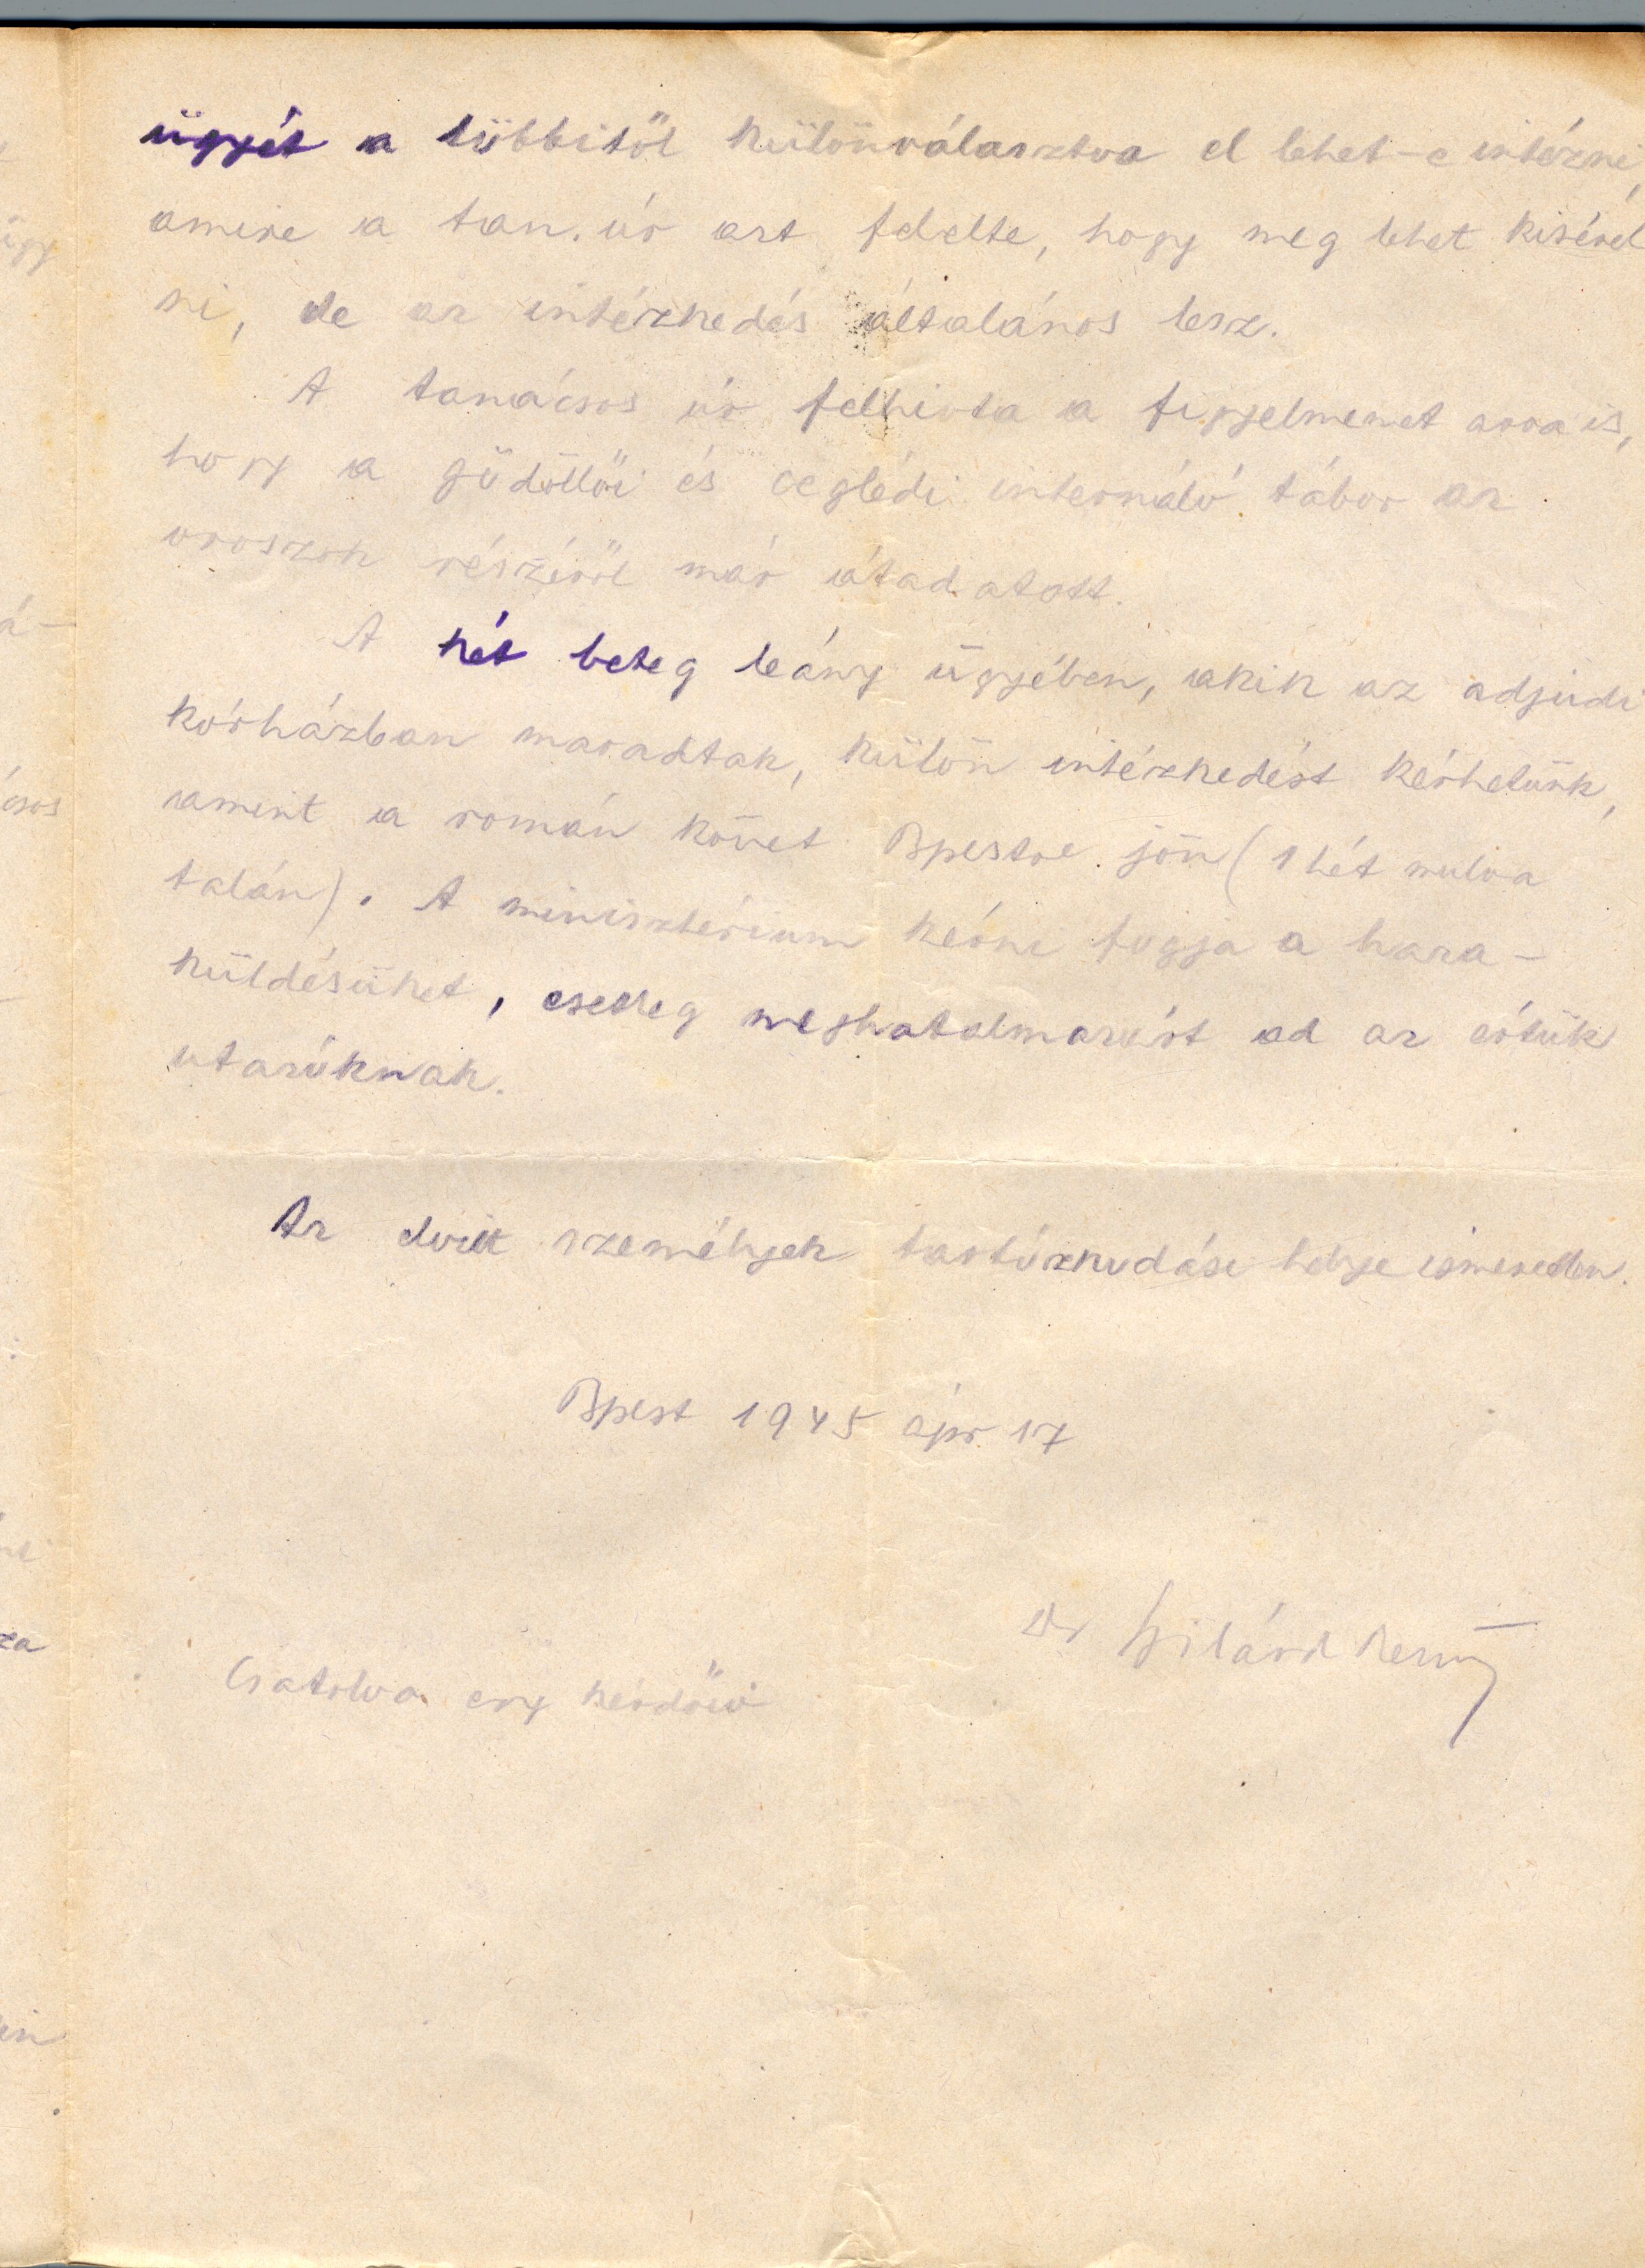 ügyét a többitől különválasztva el lehet-e intézni,
amire a tan. úr azt felelte, hogy meg lehet kisérel
ni, de az intézkedés általános lesz.
A tanácsos úr felhivta a figyelmemet arra is,
hogy a gödöllői és ceglédi internáló tábor az
oroszok részéről már átadatott.
A hét beteg leány ügyében, akik az adjudi
kórházban maradtak, külön intézkedést kérhetünk,
amint a román követ Bpestre jön (1 hét mulva
talán). A minisztérium kérni fogja a haza-
küldésüket, esetleg meghatalmazást ad az értük
utazóknak.
Az elvitt személyek tartózkodási helye ismeretlen.
Bpest 1945 ápr. 17
Dr Szilárd
Csatolva egy kérdőív